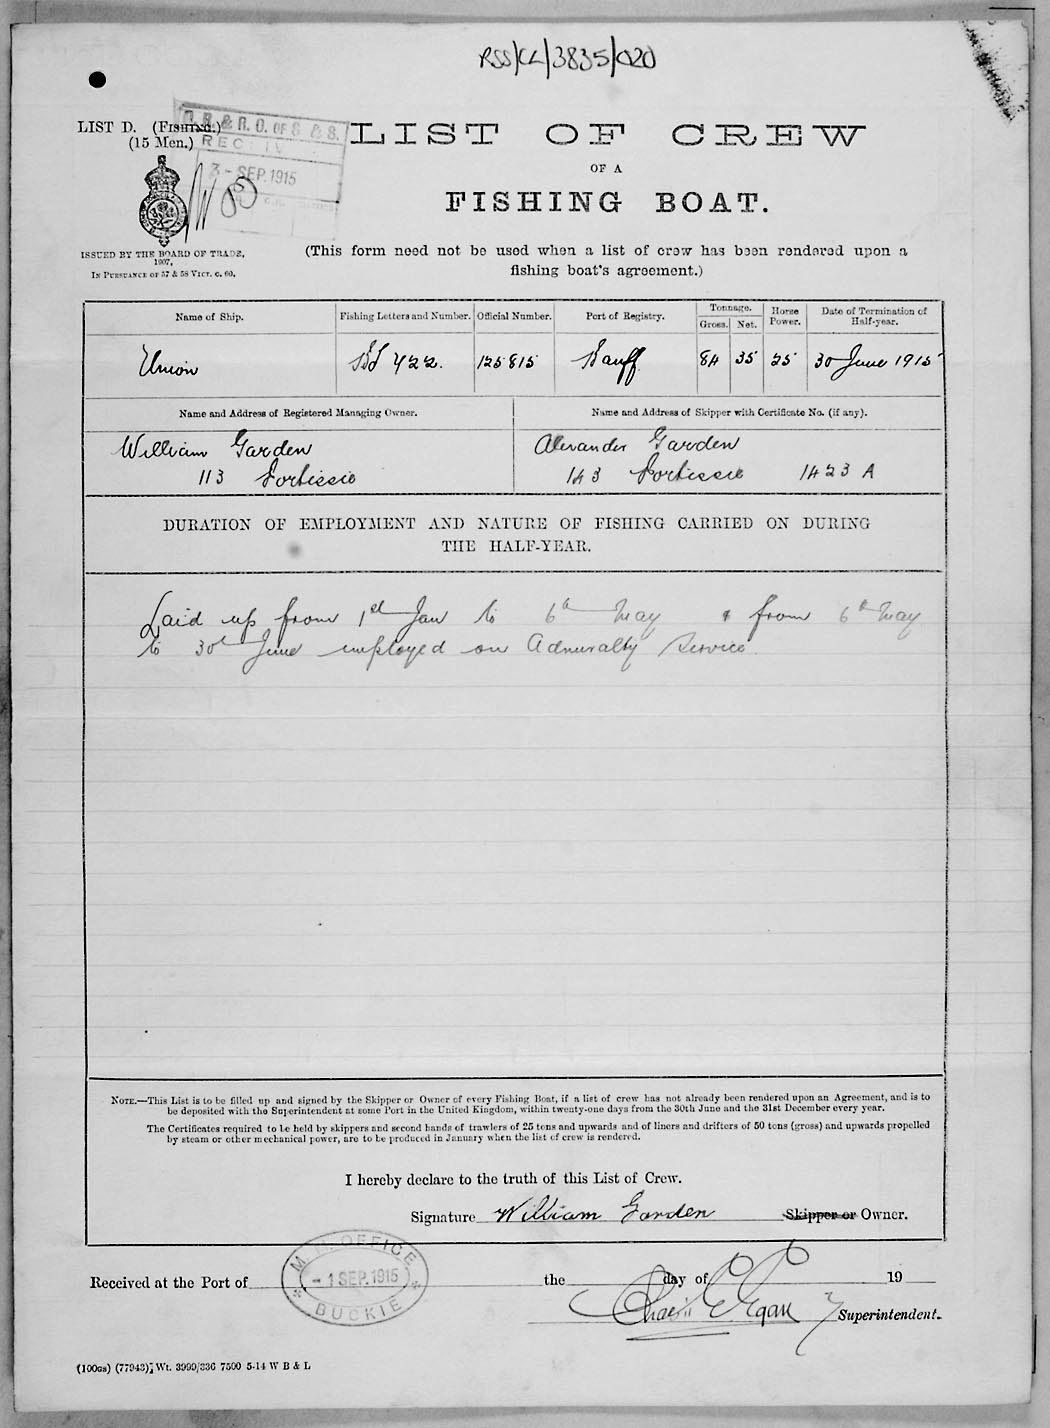 RSS/CL/3835/020
LIST D. (FISHING.)
(15 Men.)
G. R. & R. O. OF S. & S.
3 - SEP. 1915
LIST OF CREW
OF A
FISHING BOAT.
ISSUED BY THE BOARD OF TRADE,
1907,
IN PURSUANCE OF 57 & 58 VICT. C. 60.
(This form need not be used when a list of crew has been rendered upon a
fishing boat's agreement.)
Name of Ship. Fishing Letters and Number. Official Number. Port of Registry. Tonnage. Gross. Net. Horse Power. Date of Termination of Half-year.
Union BF 422. 125815 Banff 84 35 25 30 June 1915
Name and Address of Registered Managing Owner. Name and Address of Skipper with Certificate No. (if any).
William Garden Alexander Garden
113 Portessie 143 Portessie 1423 A
DURATION OF EMPLOYMENT AND NATURE OF FISHING CARRIED ON DURING
THE HALF-YEAR.
Laid up from 1st Jan to 6th May & from 6th May
to 30th June employed on Admiralty Service.
NOTE.—This List is to be filled up and signed by the Skipper or Owner of every Fishing Boat, if a list of crew has not already been rendered upon an Agreement, and is to
be deposited with the Superintendent at some Port in the United Kingdom, within twenty-one days from the 30th June and the 31st December every year.
The Certificates required to be held by skippers and second hands of trawlers of 25 tons and upwards and of liners and drifters of 50 tons (gross) and upwards propelled
by steam or other mechanical power, are to be produced in January when the list of crew is rendered.
I hereby declare to the truth of this List of Crew.
Signature William Garden Skipper or Owner.
M. M. OFFICE
- 1 SEP. 1915
BUCKIE
Received at the Port of the day of 19
Superintendent.
(100gs) (77943) Wt. 3999/336 7500 5-14 W B & L